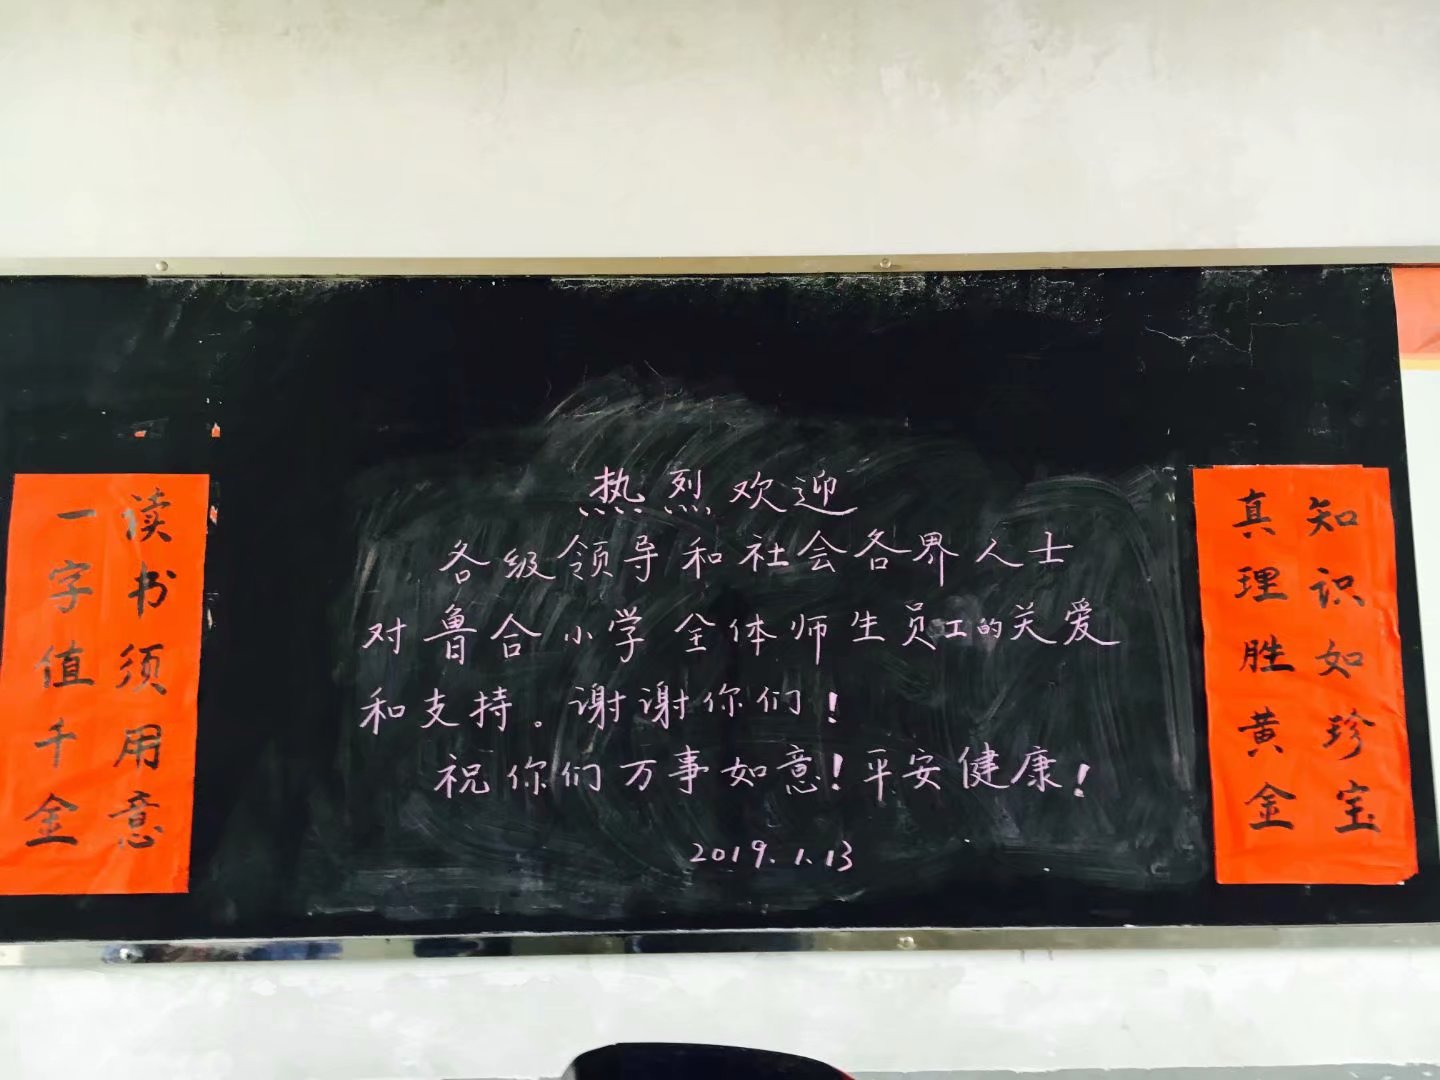 热烈欢迎
各级领导和社会各界人士
对鲁合小学全体师生员工的关爱
和支持。谢谢你们！
祝你们万事如意！平安健康！
2019.1.13
读书须用意
一字值千金
知识如珍宝
真理胜黄金